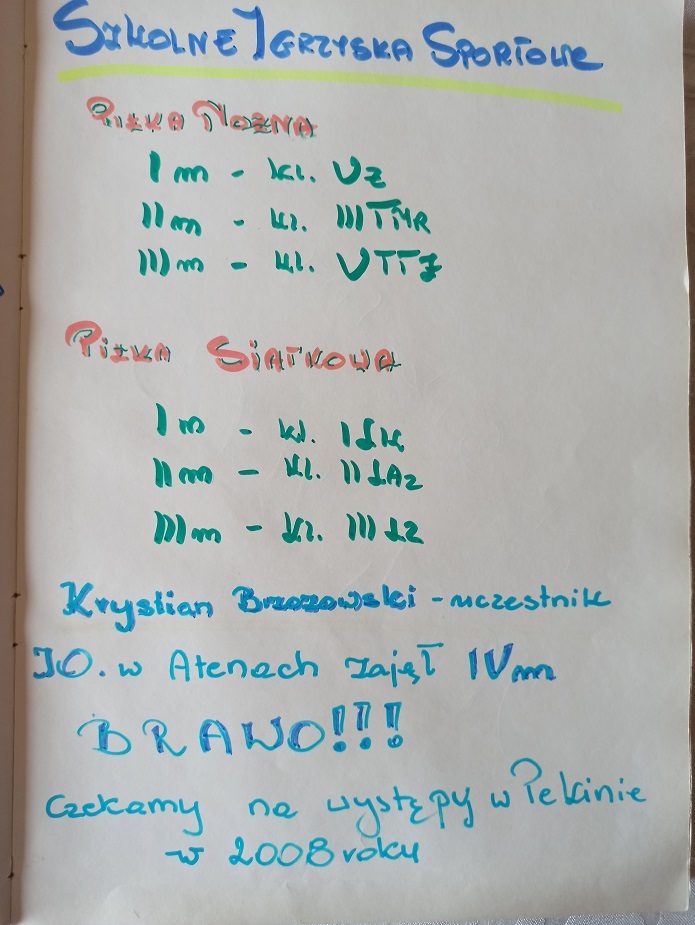 SZKOLNE IGRZYSKA SPORTOWE
PIŁKA NOŻNA
I m - kl. Vz
II m - kl. III TMR
III m - kl. V TTŻ
PIŁKA SIATKOWA
I m - kl. I
II m - kl. II ŁAz
III m - kl. III Łz
Krystian Brzozowski - uczestnik
IO. w Atenach zajął IV m
BRAWO!!!
Czekamy na występy w Pekinie
w 2008 roku